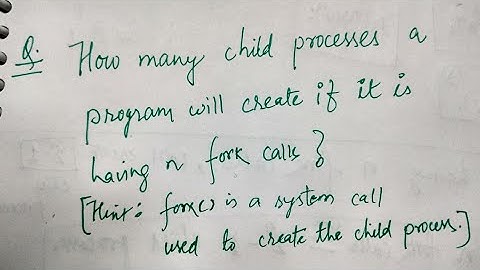 Q. How many child processes a
program will create if it is
having n fork calls ?
[Hint: fork() is a system call
used to create the child process.]